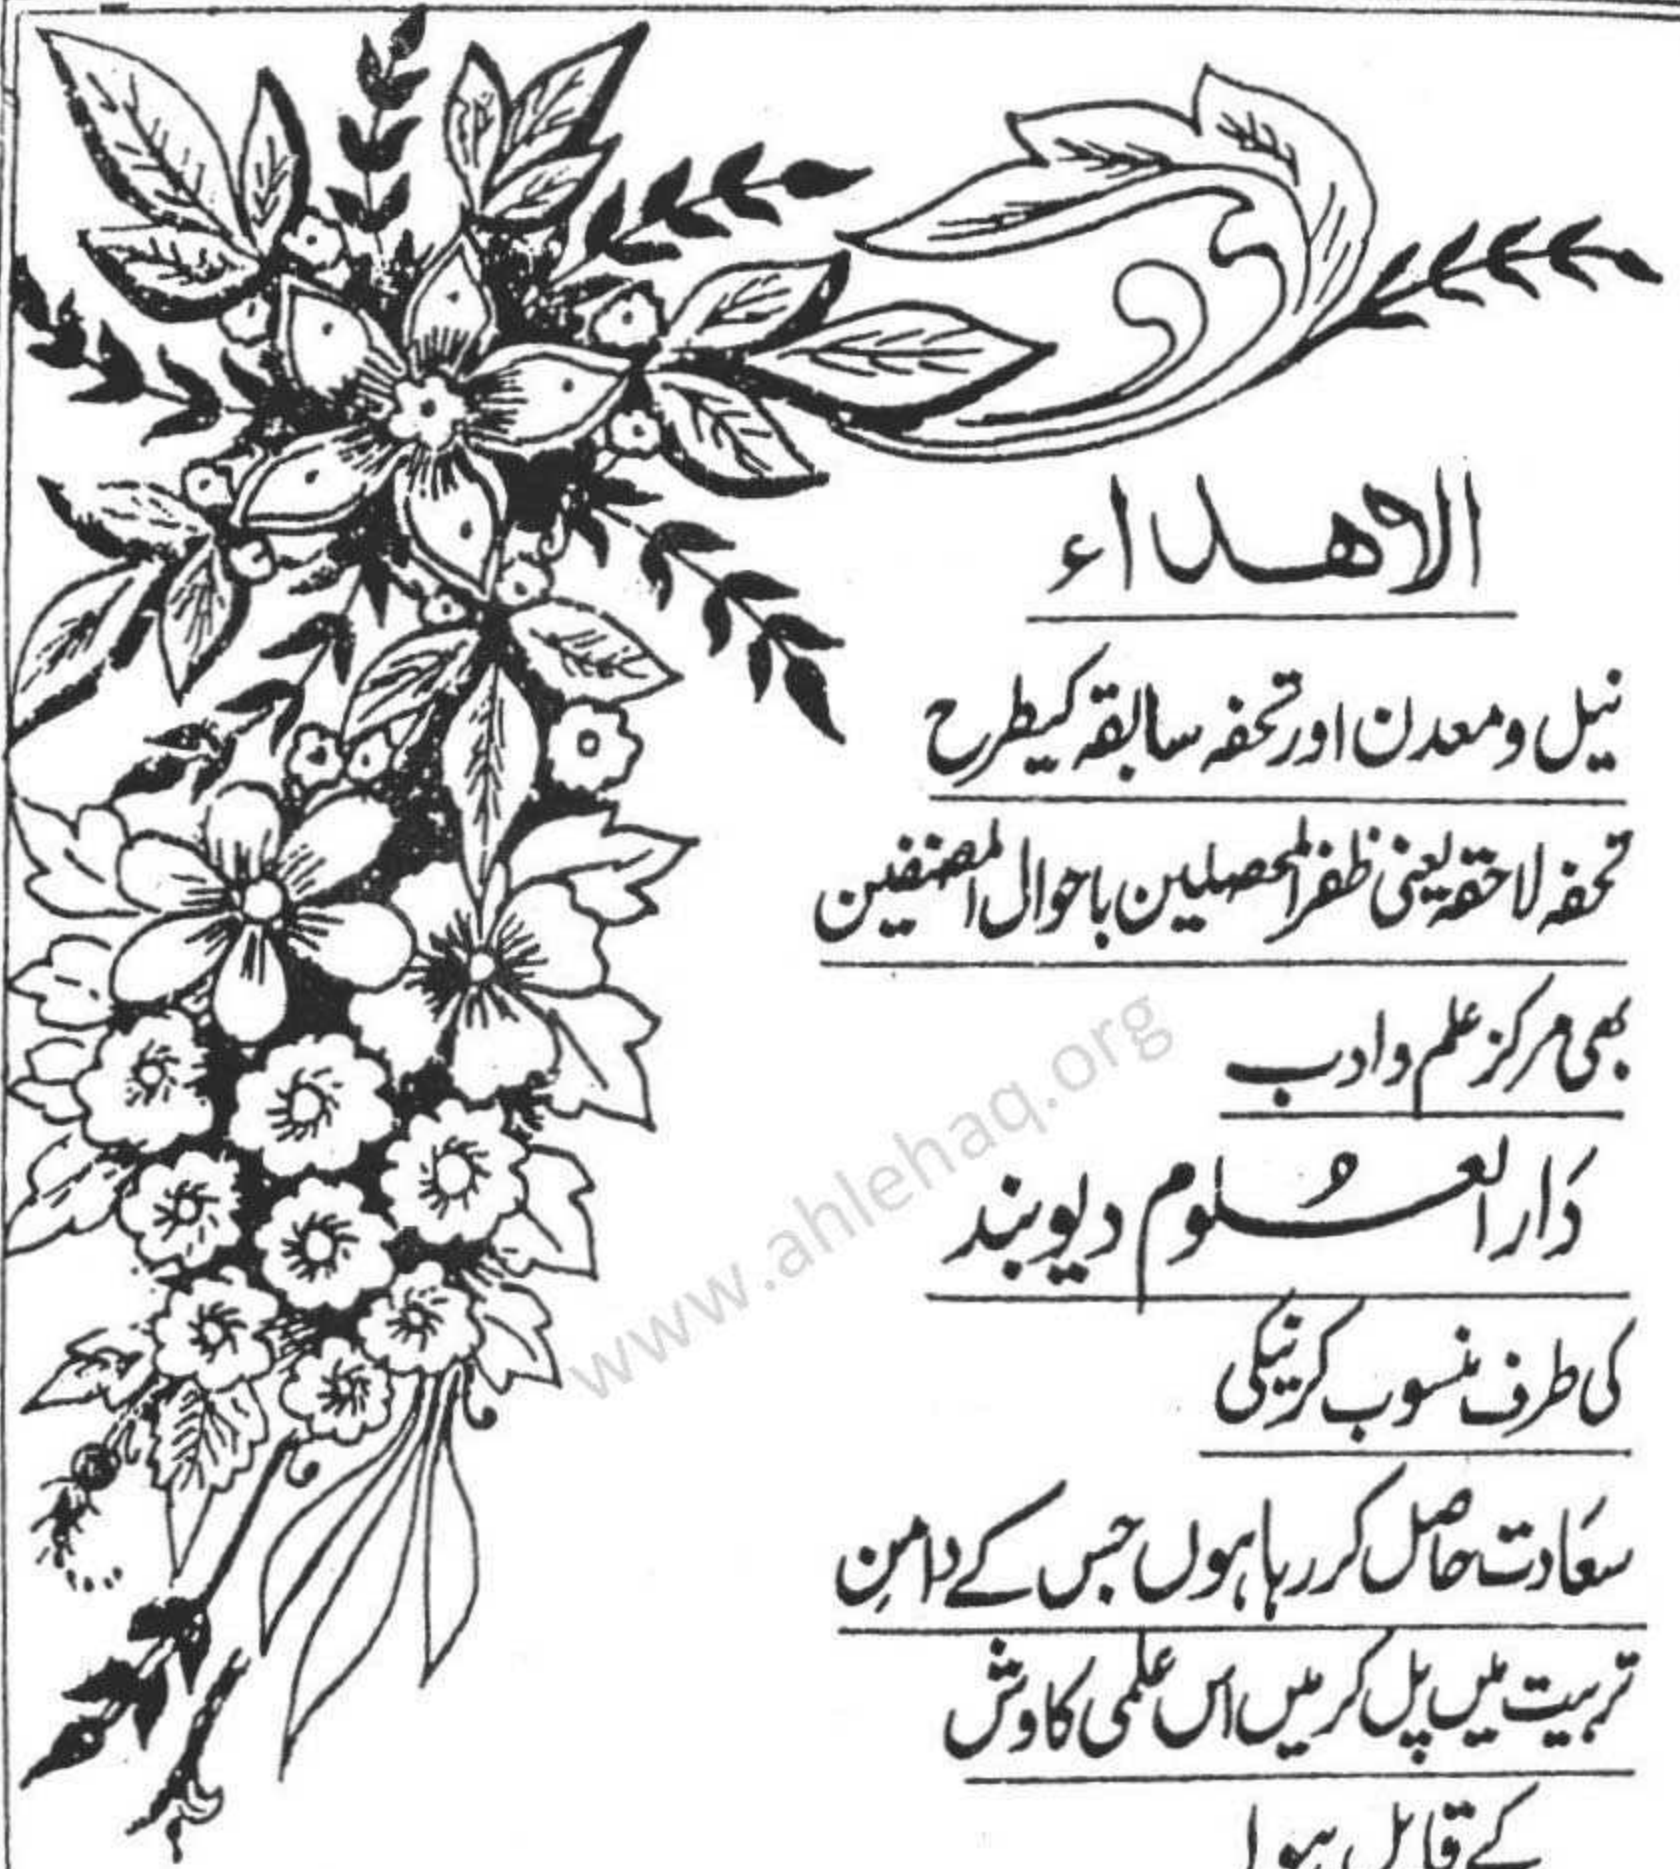 الاھداء
نیل ومعدن اور تحفہ سابقہ کیطرح
تحفہ لاحقہ یعنی ظفر المحصلین باحوال المصنفین
بھی مرکز علم وادب
دَار العُلوم دیوبند
کی طرف منسوب کرنیکی
سعَادت حَاصل کر رہا ہوں جس کے دامنِ
تربیت میں پل کر میں اس علمی کاوش
کے قابل ہوا
www.ahlehaq.org